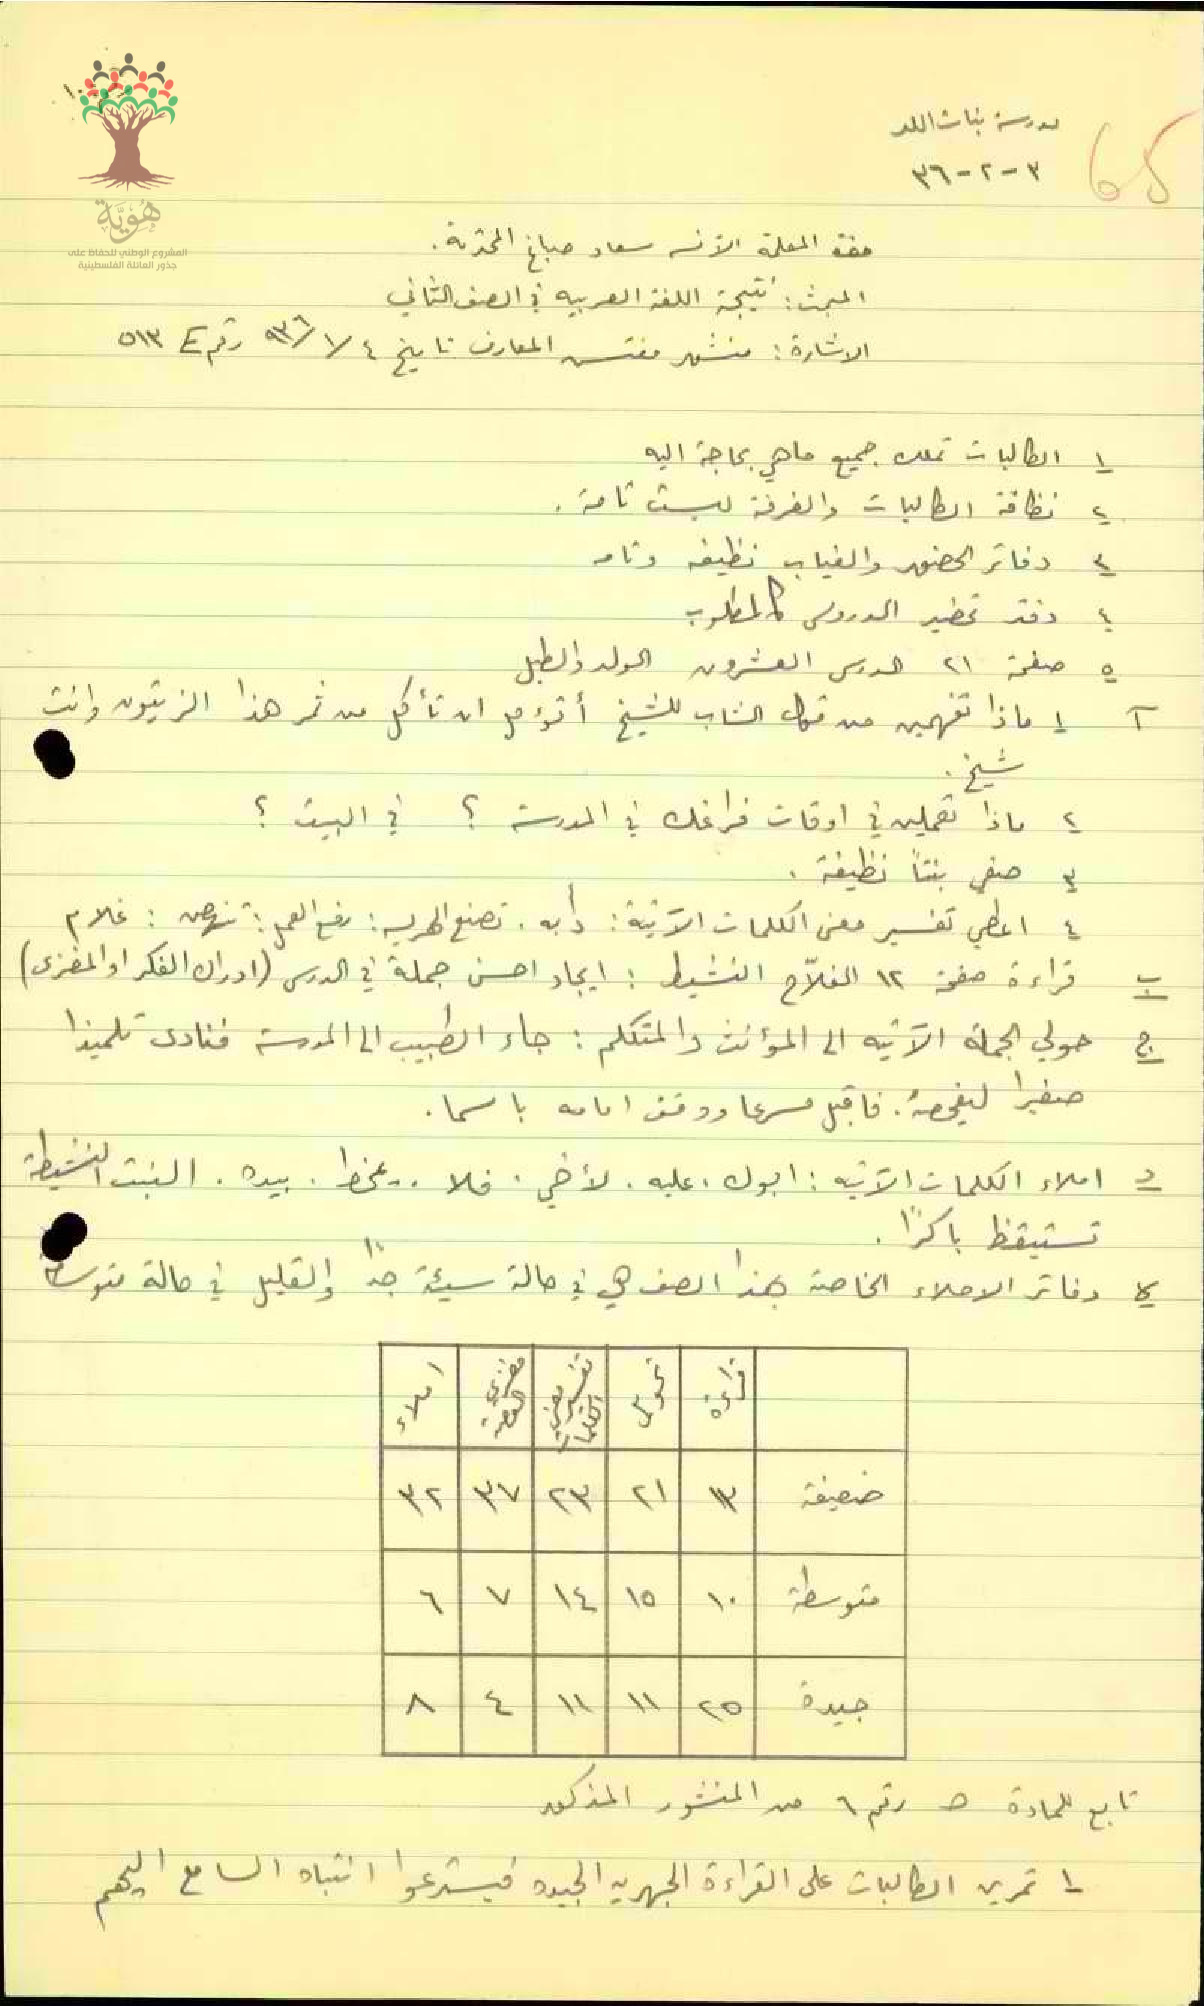 65
مدرسة بنات اللد
٣-٢-٣٦
هُوِيَّة
المشروع الوطني للحفاظ على
جذور العائلة الفلسطينية
حضرة المعلمة الآنسه سعاد صباغ المحترمة.
المبحث: نتيجة اللغة العربيه في الصف الثاني
الاشارة: منشور مفتش المعارف تاريخ ٤/١/٩٣٦ رقم E ٥١٣
١ الطالبات تملك جميع ماهي بحاجة اليه
٢ نظافة الطالبات والغرفة ليست تامة.
٣ دفاتر الحضور والغياب نظيفه وتامه
٤ دفتر تحضير الدروس كالمطلوب
٥ صفحة ٢١ الدرس العشرون الولد والطبل
آ ١ ماذا تفهمين من قول الشاب للشيخ أتؤمل ان تأكل من ثمر هذا الزيتون وانت
شيخ.
٢ ماذا تعملين في اوقات فراغك في المدرسة ؟ في البيت ؟
٣ صفي بنتاً نظيفة.
٤ اعطي تفسير معنى الكلمات الآتية: دأبه. تصنع الهريسه: رفع العمل: تنهض: غلام
ب قراءة صفحة ١٢ الفلاّح النشيط: ايجاد احسن جملة في الدرس (ادراك الفكر او المغزى)
ج حولي الجملة الآتيه الى المؤنث والمتكلم: جاء الطبيب الى المدرسة فنادى تلميذا
صغيرا ليفحصهُ. فاقبل مسرعا ووقف امامه باسما.
د املاء الكلمات الآتيه: ابوك. عليه. لأخي. فلا .. يمخط. بيده. البنت النشيطة
تستيقظ باكرًا.
ﻫ دفاتر الاملاء الخاصة بهذا الصف هي في حالة سيئة جدًا والقليل في حالة متوسطة
قراءة تحويل تفسير معنى الكلمات مغزى القصة املاء
ضعيفة ١٣ ٢١ ٢٣ ٣٧ ٣٢
متوسطة ١٠ ١٥ ١٤ ٧ ٦
جيدة ٢٥ ١١ ١١ ٤ ٨
تابع للمادة ﻫ رقم ٦ من المنشور المذكور
١ تمرين الطالبات على القراءة الجهريه الجيده فيسترعوا انتباه السامع اليهم